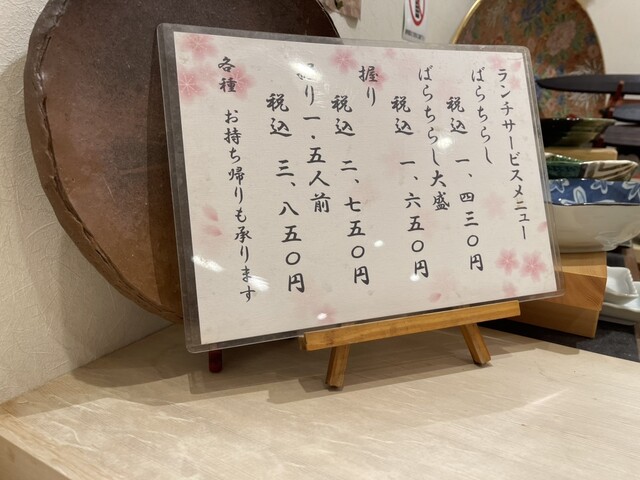 ランチサービスメニュー
ばらちらし
税込 一、四三〇円
ばらちらし大盛
税込 一、六五〇円
握り
税込 二、七五〇円
握り一・五人前
税込 三、八五〇円
各種 お持ち帰りも承ります